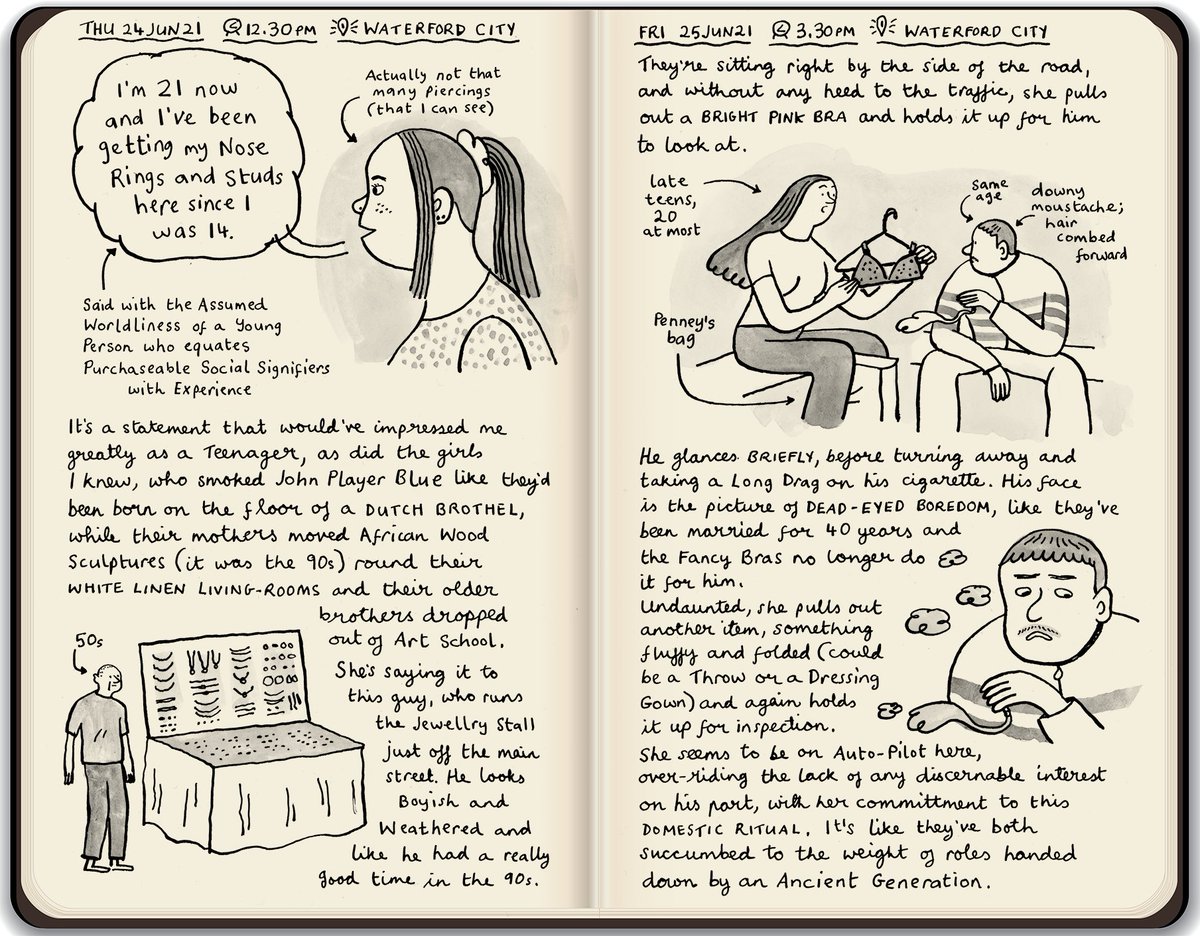 THU 24JUN21 12.30PM WATERFORD CITY
I'm 21 now
and I've been
getting my Nose
Rings and Studs
here since I
was 14.
Actually not that
many Piercings
(that I can see)
Said with the Assumed
Worldliness of a Young
Person who equates
Purchaseable Social Signifiers
with Experience
It's a statement that would've impressed me
greatly as a Teenager, as did the girls
I knew, who smoked John Player Blue like they'd
been born on the floor of a DUTCH BROTHEL,
while their mothers moved African Wood
Sculptures (it was the 90s) round their
WHITE LINEN LIVING-ROOMS and their older
brothers dropped
out of Art School.
50s
She's saying it to
this guy, who runs
the Jewellry Stall
just off the main
street. He looks
Boyish and
Weathered and
like he had a really
good time in the 90s.
FRI 25JUN21 3.30PM WATERFORD CITY
They're sitting right by the side of the road,
and without any heed to the traffic, she pulls
out a BRIGHT PINK BRA and holds it up for him
to look at.
late
teens,
20
at most
same
age
downy
moustache;
hair
combed
forward
Penney's
bag
He glances BRIEFLY, before turning away and
taking a Long Drag on his cigarette. His face
is the picture of DEAD-EYED BOREDOM, like they've
been married for 40 years and
the Fancy Bras no longer do
it for him.
Undaunted, she pulls out
another item, something
fluffy and folded (could
be a Throw or a Dressing
Gown) and again holds
it up for inspection.
She seems to be on Auto-Pilot here,
over-riding the lack of any discernable interest
on his part, with her committment to this
DOMESTIC RITUAL. It's like they've both
succumbed to the weight of roles handed
down by an Ancient Generation.